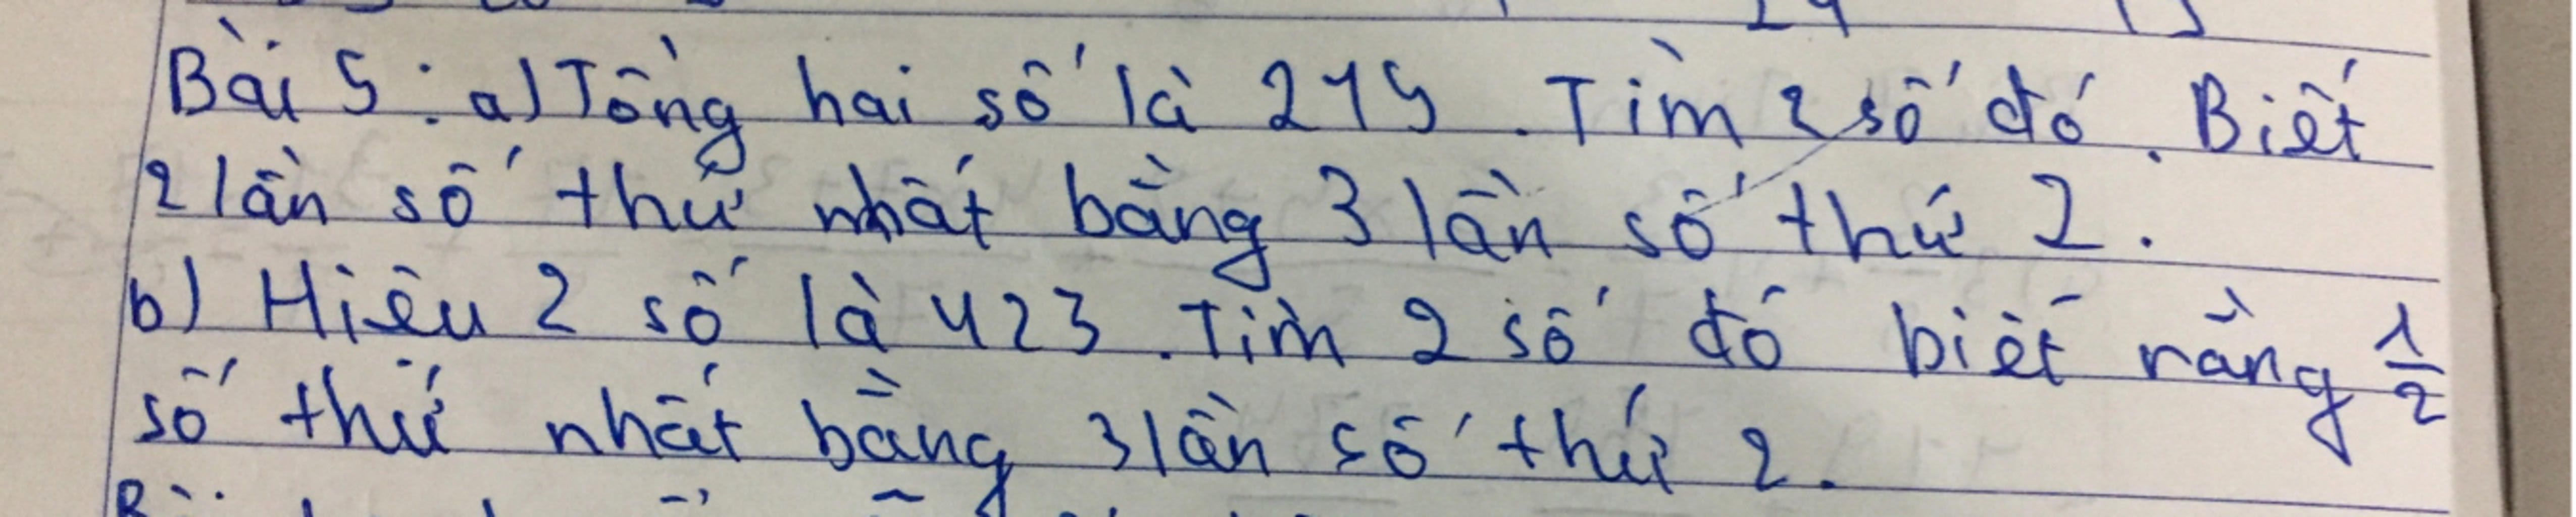 Bài 5: a) Tổng hai số là 215. Tìm 2 số đó. Biết
2 lần số thứ nhất bằng 3 lần số thứ 2.
b) Hiệu 2 số là 423. Tìm 2 số đó biết rằng 1/2
số thứ nhất bằng 3 lần số thứ 2.